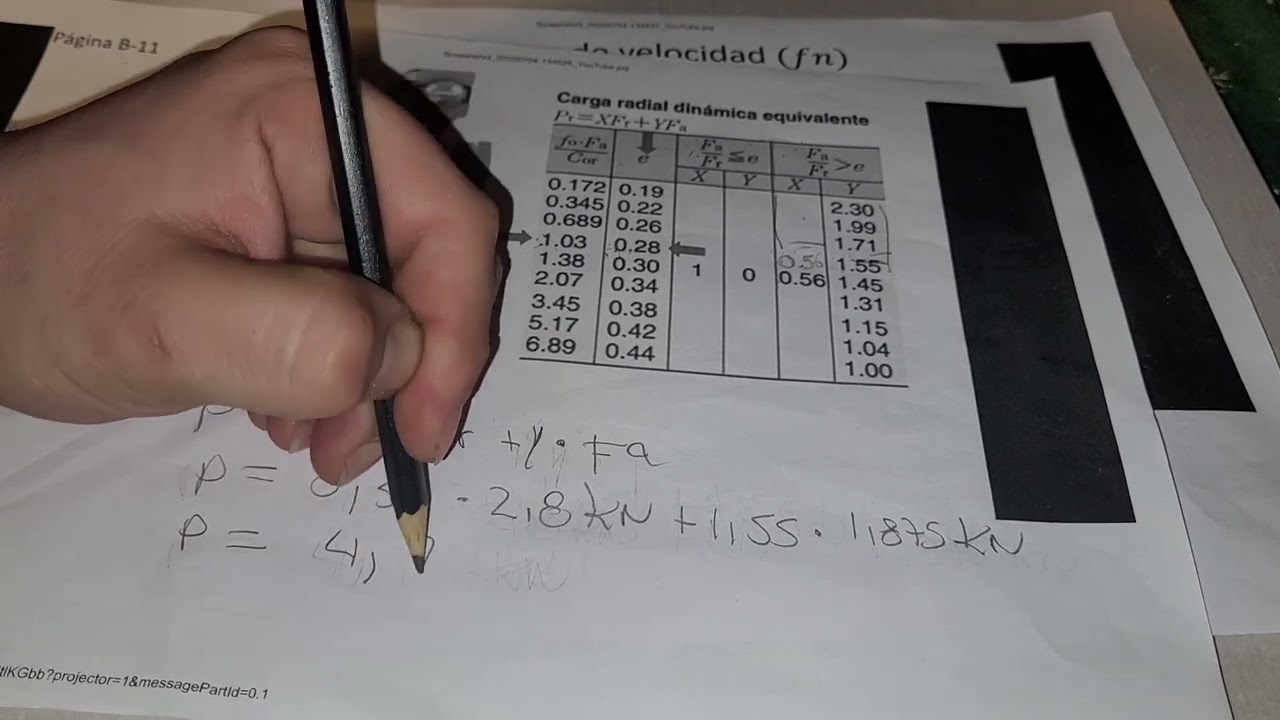 Página B-11
de velocidad (fn)
Carga radial dinámica equivalente
Pr=XFr+YFa
fo·Fa/Cor e Fa/Fr≦e Fa/Fr>e
X Y X Y
0.172 0.19 2.30
0.345 0.22 1.99
0.689 0.26 1.71
1.03 0.28 0.56 1.55
1.38 0.30 1 0 0.56 1.45
2.07 0.34 1.31
3.45 0.38 1.15
5.17 0.42 1.04
6.89 0.44 1.00
+Y· Fa
P = · 2,8 kN + 1,55 · 1,875 kN
P = 4,
KGbb?projector=1&messagePartId=0.1